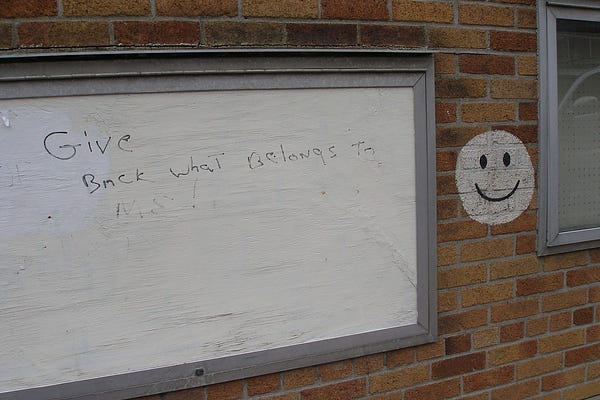 Give
Back what Belongs To